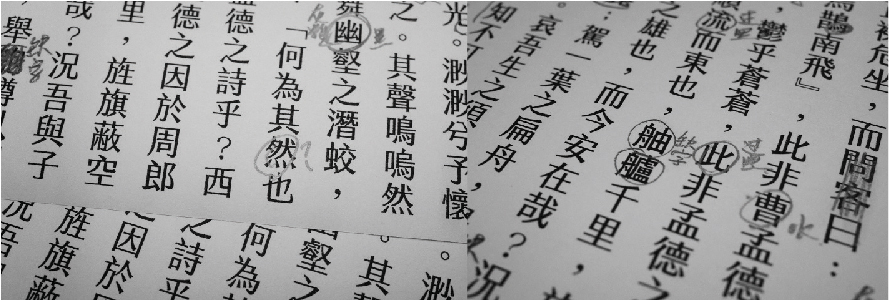 光。渺渺兮予懷
之。其聲鳴嗚然
舞幽壑之潛蛟,
「何為其然也
孟德之詩乎?西
德之因於周郎
里,旌旗蔽空
哉?況吾與子
舉
缺字
。渺
。其
幽壑之
何為
之詩
之因於
旌旗蔽
況吾
危坐,而問客曰:
鵲南飛』,此非曹孟德
,鬱乎蒼蒼,此非孟德之
流而東也,舳艫千里,
缺字
之雄也,而今安在哉?況
駕一葉之扁舟,
。哀吾生之須
知不可